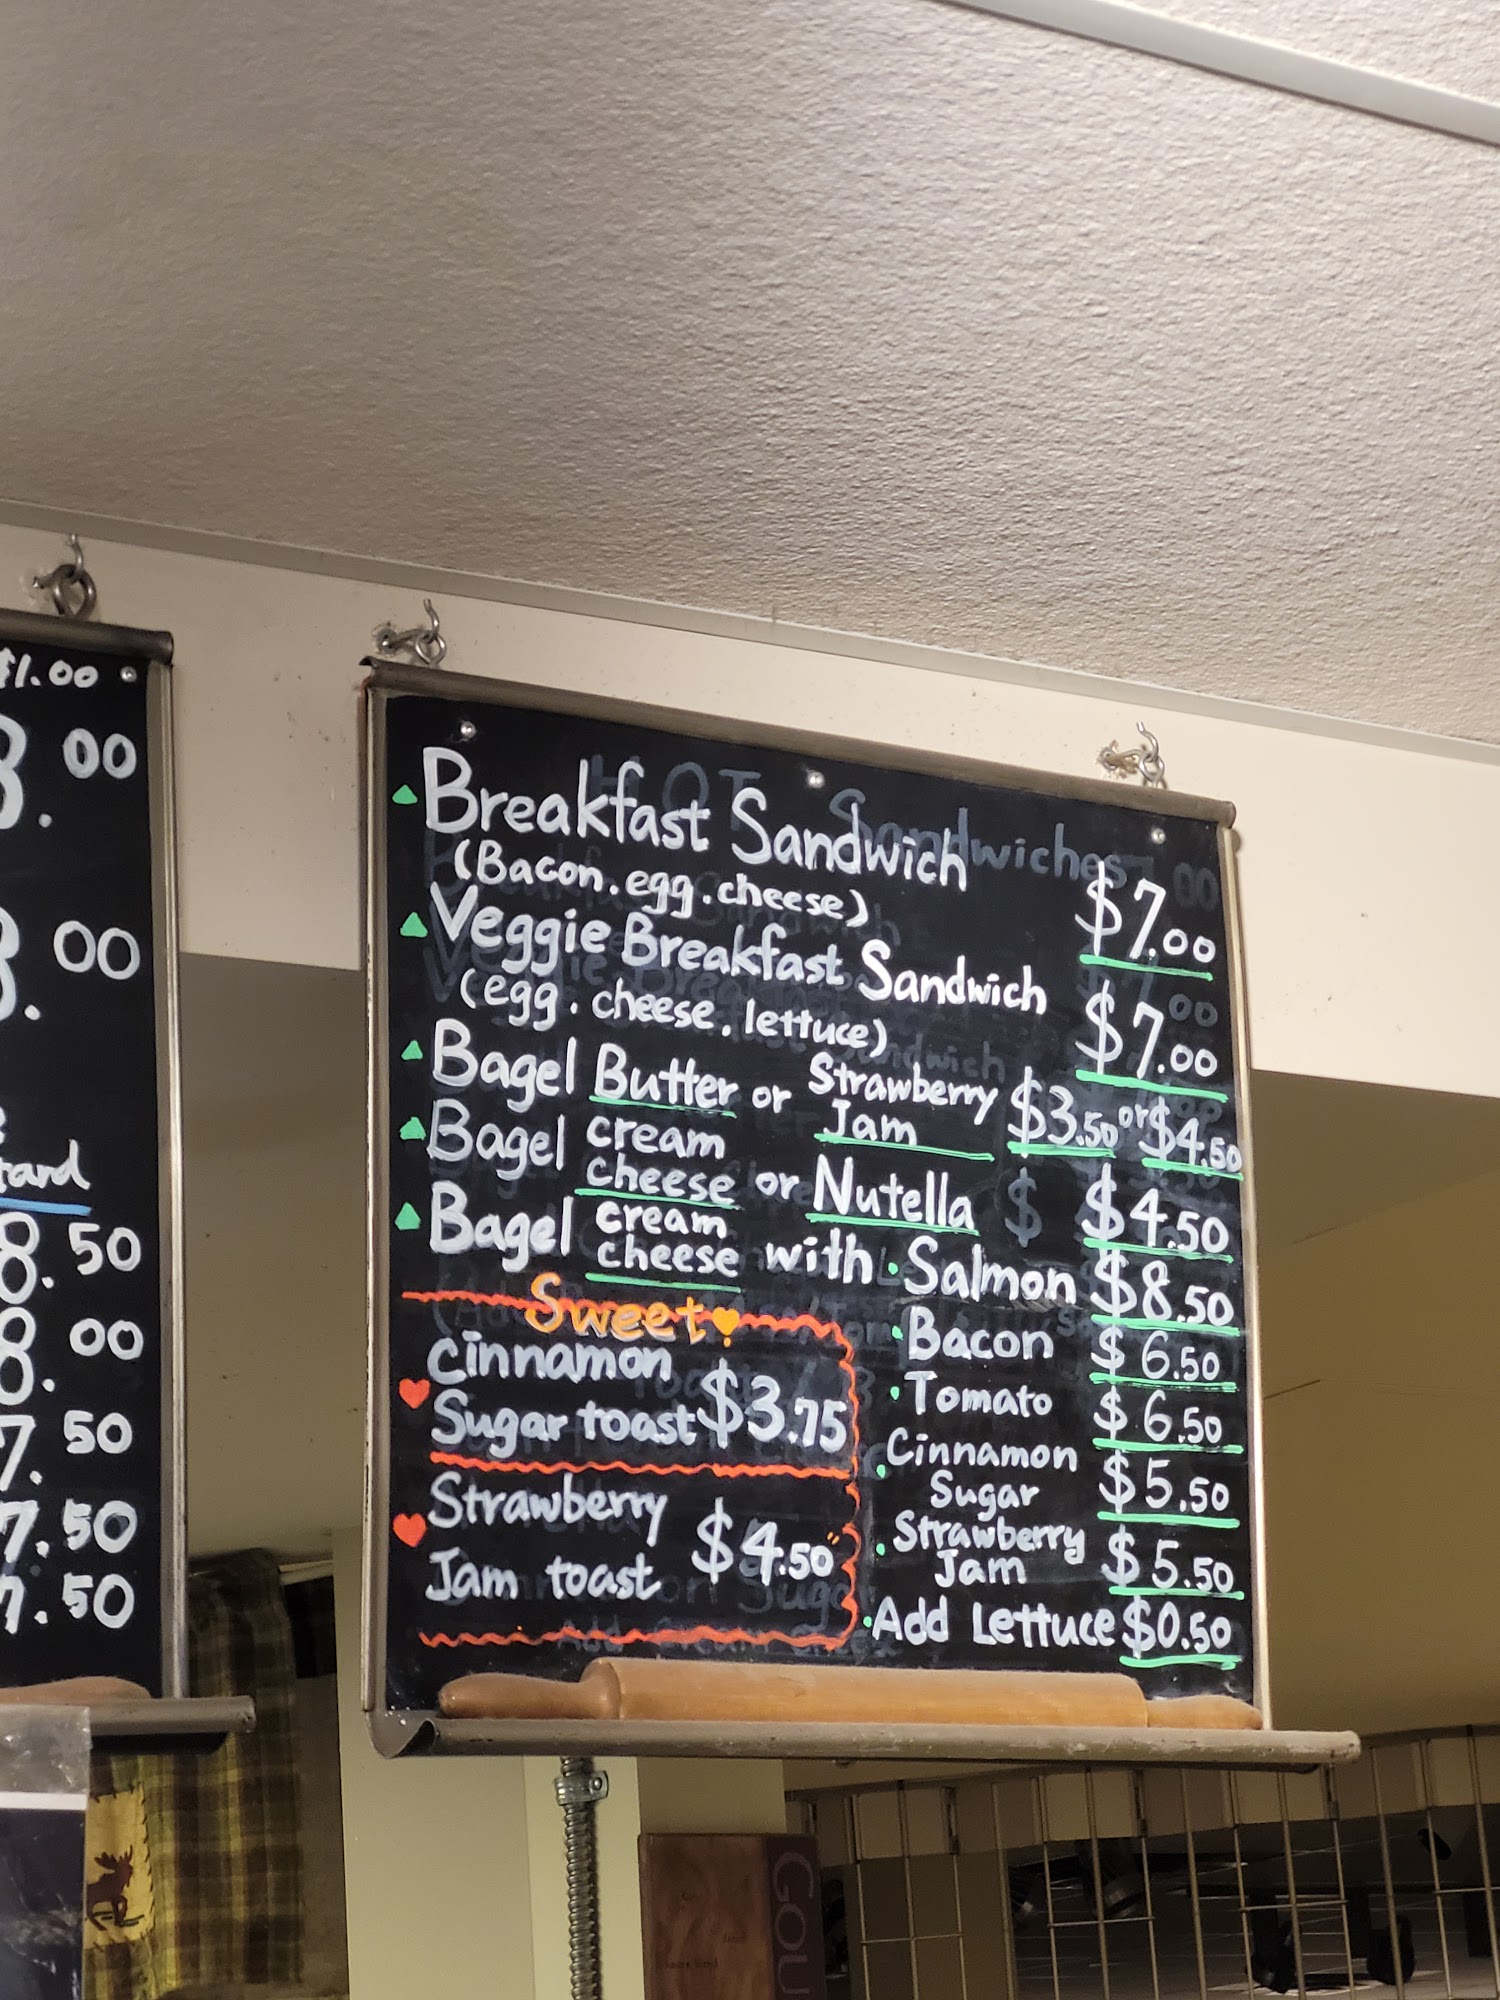 $1.00
00
00
tard
8.50
8.00
7.50
7.50
7.50
Breakfast Sandwich
(Bacon.egg.cheese) $7.00
Veggie Breakfast Sandwich
(egg.cheese.lettuce) $7.00
Bagel Butter or Strawberry Jam $3.50 or $4.50
Bagel cream cheese or Nutella $4.50
Bagel cream cheese with · Salmon $8.50
· Bacon $6.50
· Tomato $6.50
· Cinnamon Sugar $5.50
· Strawberry Jam $5.50
· Add Lettuce $0.50
Sweet
Cinnamon
Sugar toast $3.75
Strawberry
Jam toast $4.50
GOU